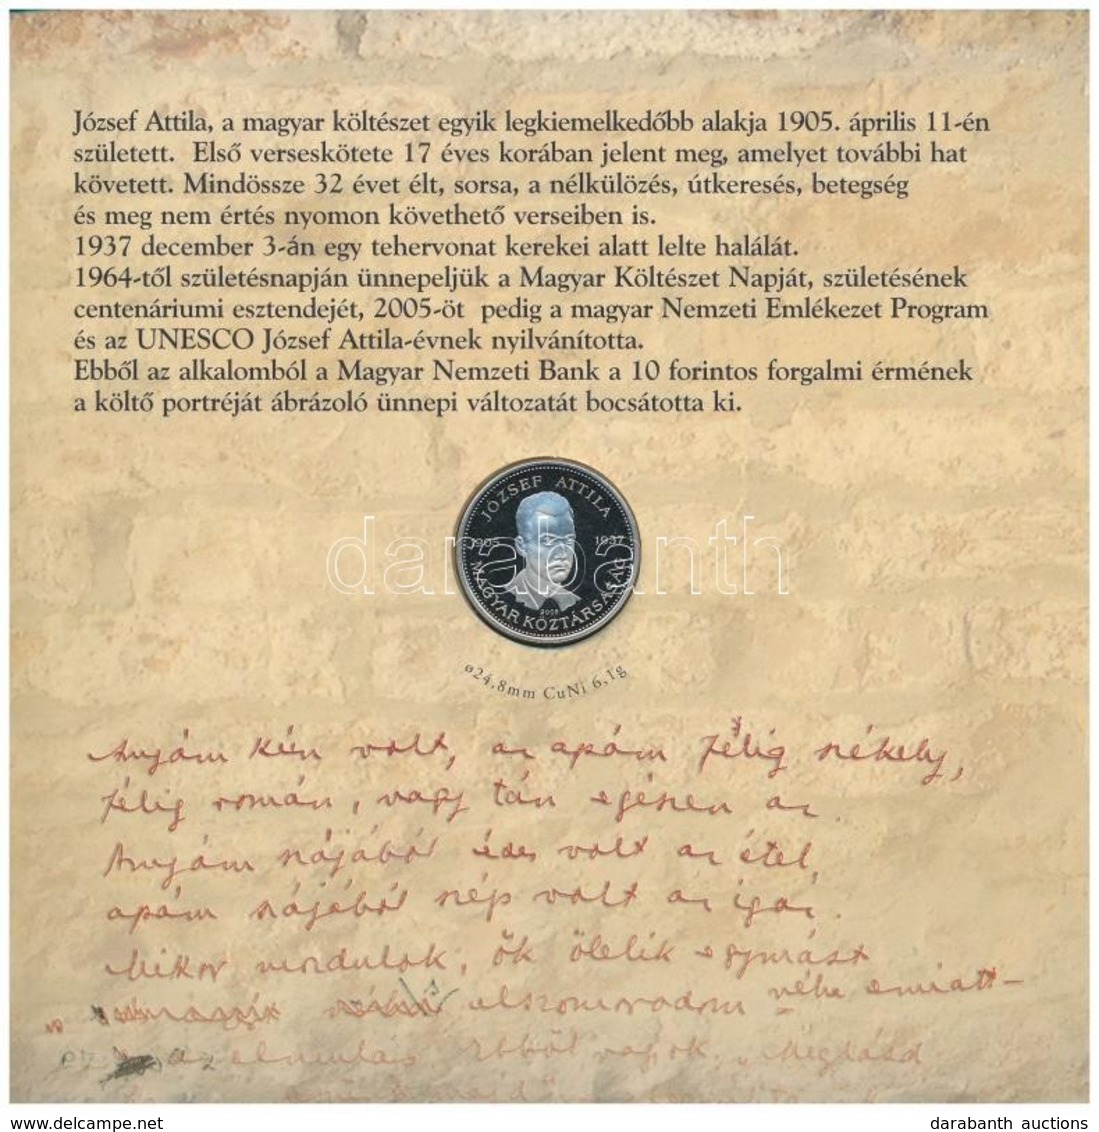 József Attila, a magyar költészet egyik legkiemelkedőbb alakja 1905. április 11-én
született. Első verseskötete 17 éves korában jelent meg, amelyet további hat
követett. Mindössze 32 évet élt, sorsa, a nélkülözés, útkeresés, betegség
és meg nem értés nyomon követhető verseiben is.
1937 december 3-án egy tehervonat kerekei alatt lelte halálát.
1964-től születésnapján ünnepeljük a Magyar Költészet Napját, születésének
centenáriumi esztendejét, 2005-öt pedig a magyar Nemzeti Emlékezet Program
és az UNESCO József Attila-évnek nyilvánította.
Ebből az alkalomból a Magyar Nemzeti Bank a 10 forintos forgalmi érmének
a költő portréját ábrázoló ünnepi változatát bocsátotta ki.
JÓZSEF ATTILA
1905 1937
MAGYAR KÖZTÁRSASÁG
darabanth
ø24,8mm CuNi 6,1g
Anyám kún volt, az apám félig székely,
félig román, vagy tán egészen az.
Anyám szájából édes volt az étel,
apám szájából szép volt az igaz.
Mikor mozdulok, ők ölelik egymást
elszomorodom néha emiatt –
ez az elmulás. Ebből vagyok. „Meglásd
darabanth auctions